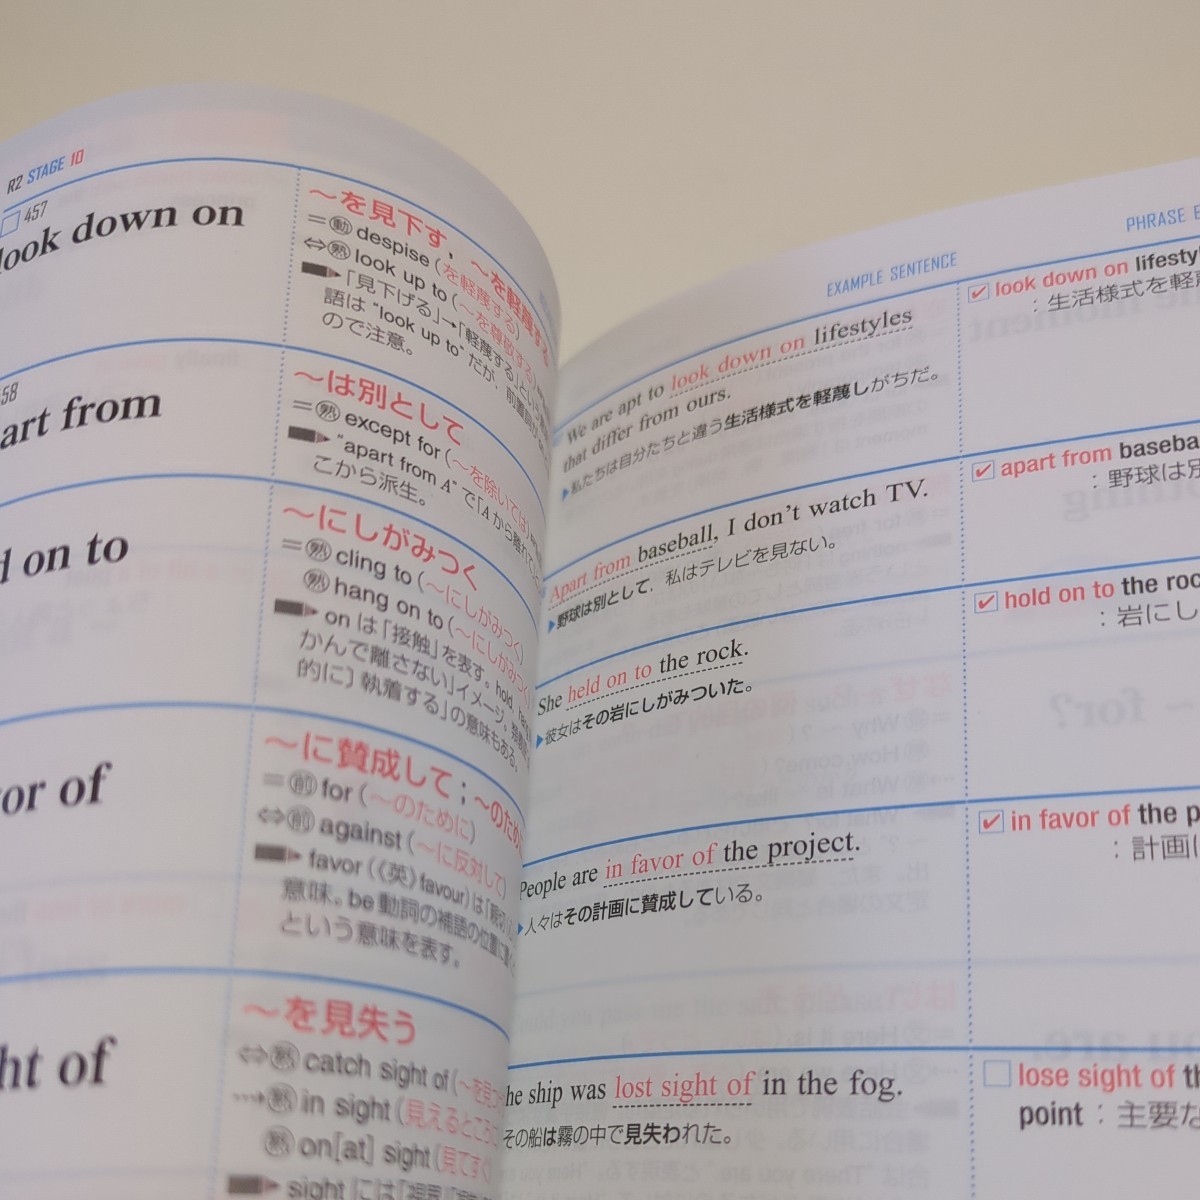 R2 STAGE 10
457
look down on
～を見下す，～を軽蔑する
＝動 despise（を軽蔑する）
⇔熟 look up to（～を尊敬する）
「見下げる」→「軽蔑する」という
語は "look up to" だが，前置詞が
ので注意。
58
art from
～は別として
＝熟 except for（～を除いては）
"apart from A" で「Aから離れて
こから派生。
d on to
～にしがみつく
＝熟 cling to（～にしがみつく）
熟 hang on to（～にしがみつく）
on は「接触」を表す。hold
かんで離さない」イメージ。
的に〕執着する」の意味もある。
or of
～に賛成して；～のため
＝前 for（～のために）
⇔前 against（～に反対して）
favor（《英》favour）は「親切
意味。be動詞の補語の位置に
という意味を表す。
ht of
～を見失う
⇔熟 catch sight of（～を見つ
熟 in sight（見えるところに
熟 on[at] sight（見てすぐ
sight には「視界」
EXAMPLE SENTENCE
We are apt to look down on lifestyles
that differ from ours.
私たちは自分たちと違う生活様式を軽蔑しがちだ。
Apart from baseball, I don't watch TV.
野球は別として，私はテレビを見ない。
She held on to the rock.
彼女はその岩にしがみついた。
People are in favor of the project.
人々はその計画に賛成している。
he ship was lost sight of in the fog.
その船は霧の中で見失われた。
PHRASE E
look down on lifestyl
：生活様式を軽
apart from baseba
：野球は別
hold on to the roc
：岩にし
in favor of the p
：計画に
lose sight of th
point：主要な